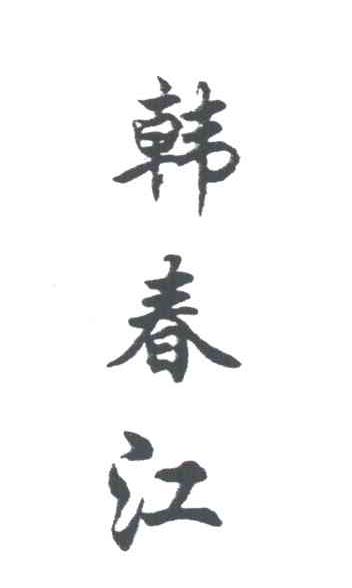 韩春江